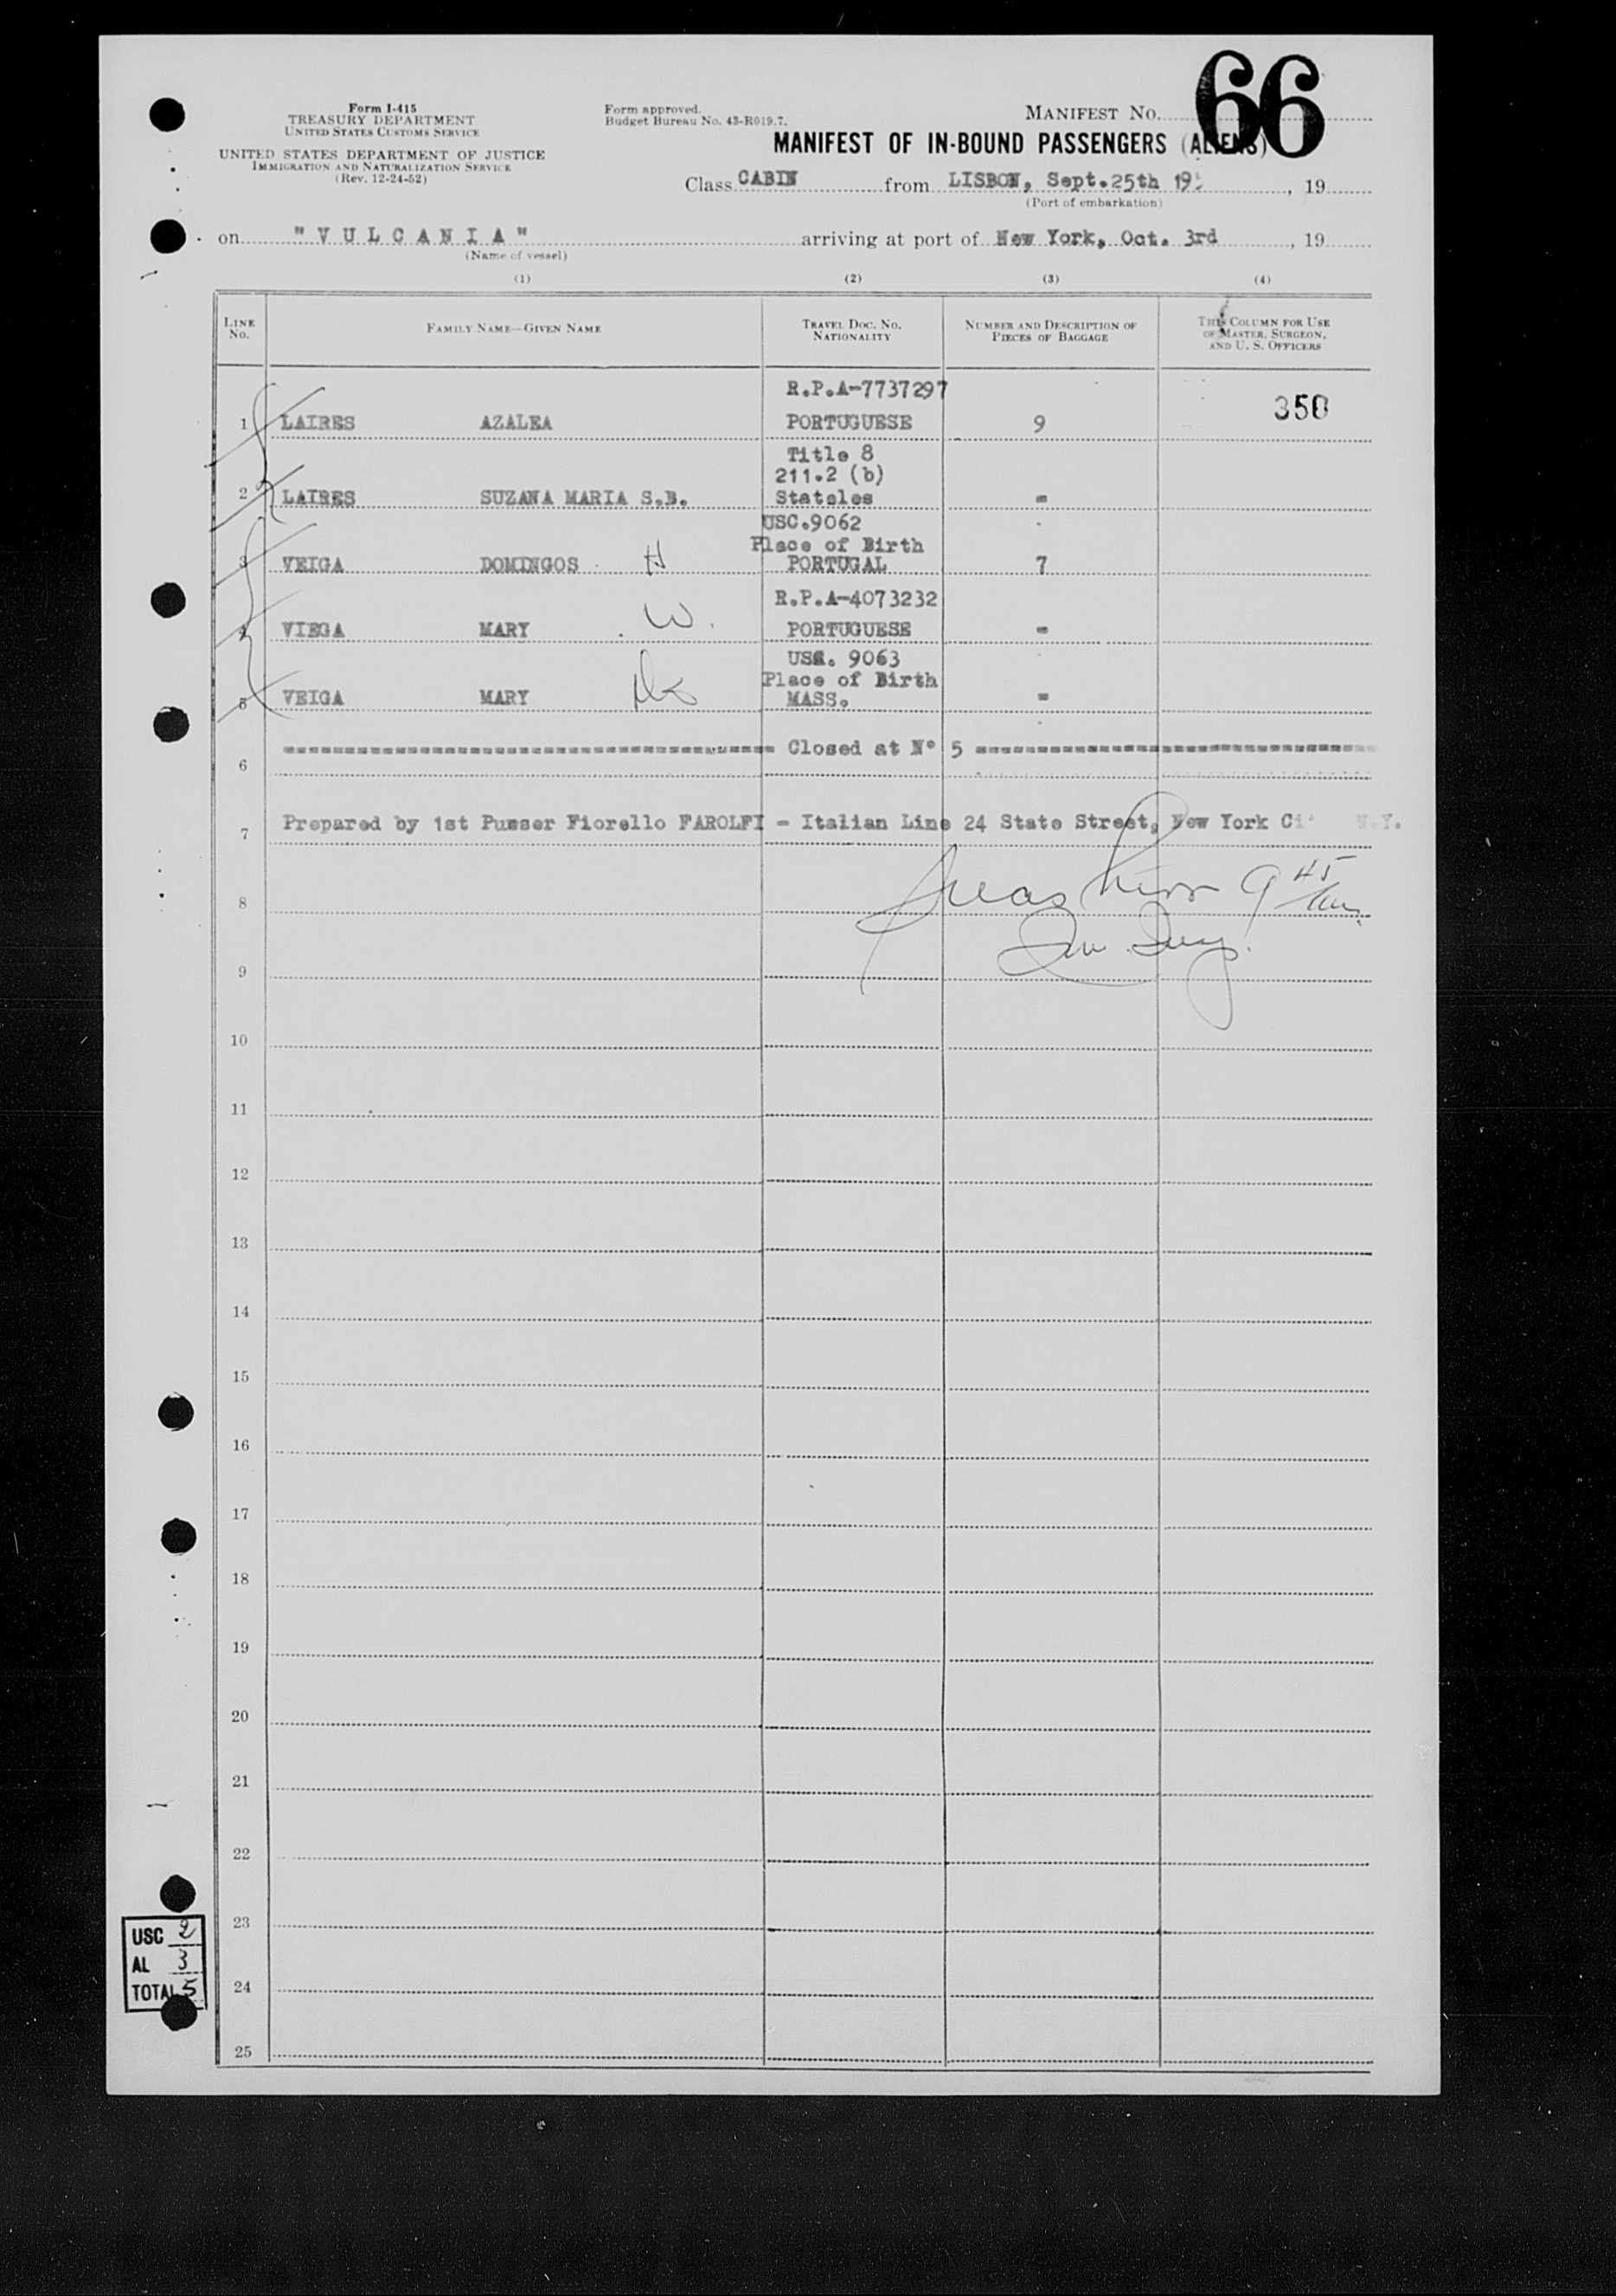 66
Form I-415
TREASURY DEPARTMENT
UNITED STATES CUSTOMS SERVICE
UNITED STATES DEPARTMENT OF JUSTICE
IMMIGRATION AND NATURALIZATION SERVICE
(Rev. 12-24-52)
Form approved.
Budget Bureau No. 43-R019.7.
MANIFEST NO.
MANIFEST OF IN-BOUND PASSENGERS (ALIENS)
Class CABIN from LISBON, Sept.25th 19 , 19
(Port of embarkation)
on "V U L C A N I A" arriving at port of New York, Oct. 3rd , 19
(Name of vessel)
(1) (2) (3) (4)
LINE No. FAMILY NAME—GIVEN NAME TRAVEL DOC. NO. NATIONALITY NUMBER AND DESCRIPTION OF PIECES OF BAGGAGE THIS COLUMN FOR USE OF MASTER, SURGEON, AND U. S. OFFICERS
R.P.A-7737297
1 LAIRES AZALEA PORTUGUESE 9 350
Title 8
211.2 (b)
2 LAIRES SUZANA MARIA S.B. Stateles -
USC.9062
Place of Birth
3 VEIGA DOMINGOS H PORTUGAL 7
R.P.A-4073232
4 VIEGA MARY W. PORTUGUESE -
USC. 9063
Place of Birth
5 VEIGA MARY MASS. -
Closed at Nº 5
6
7 Prepared by 1st Pumser Fiorello FAROLFI - Italian Line 24 State Street, New York Ci N.Y.
8 9 45
9
10
11
12
13
14
15
16
17
18
19
20
21
22
23
24
25
USC 2
AL 3
TOTAL 5